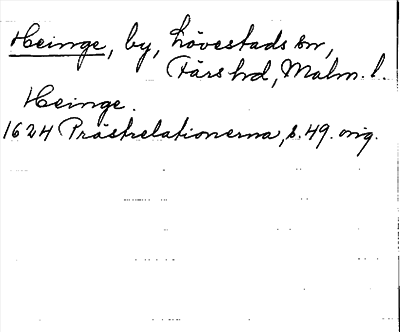 Heinge, by, Lövestads sn,
Färs hd, Malm. l.
Heinge.
1624 Prästrelationerna, s. 49. orig.